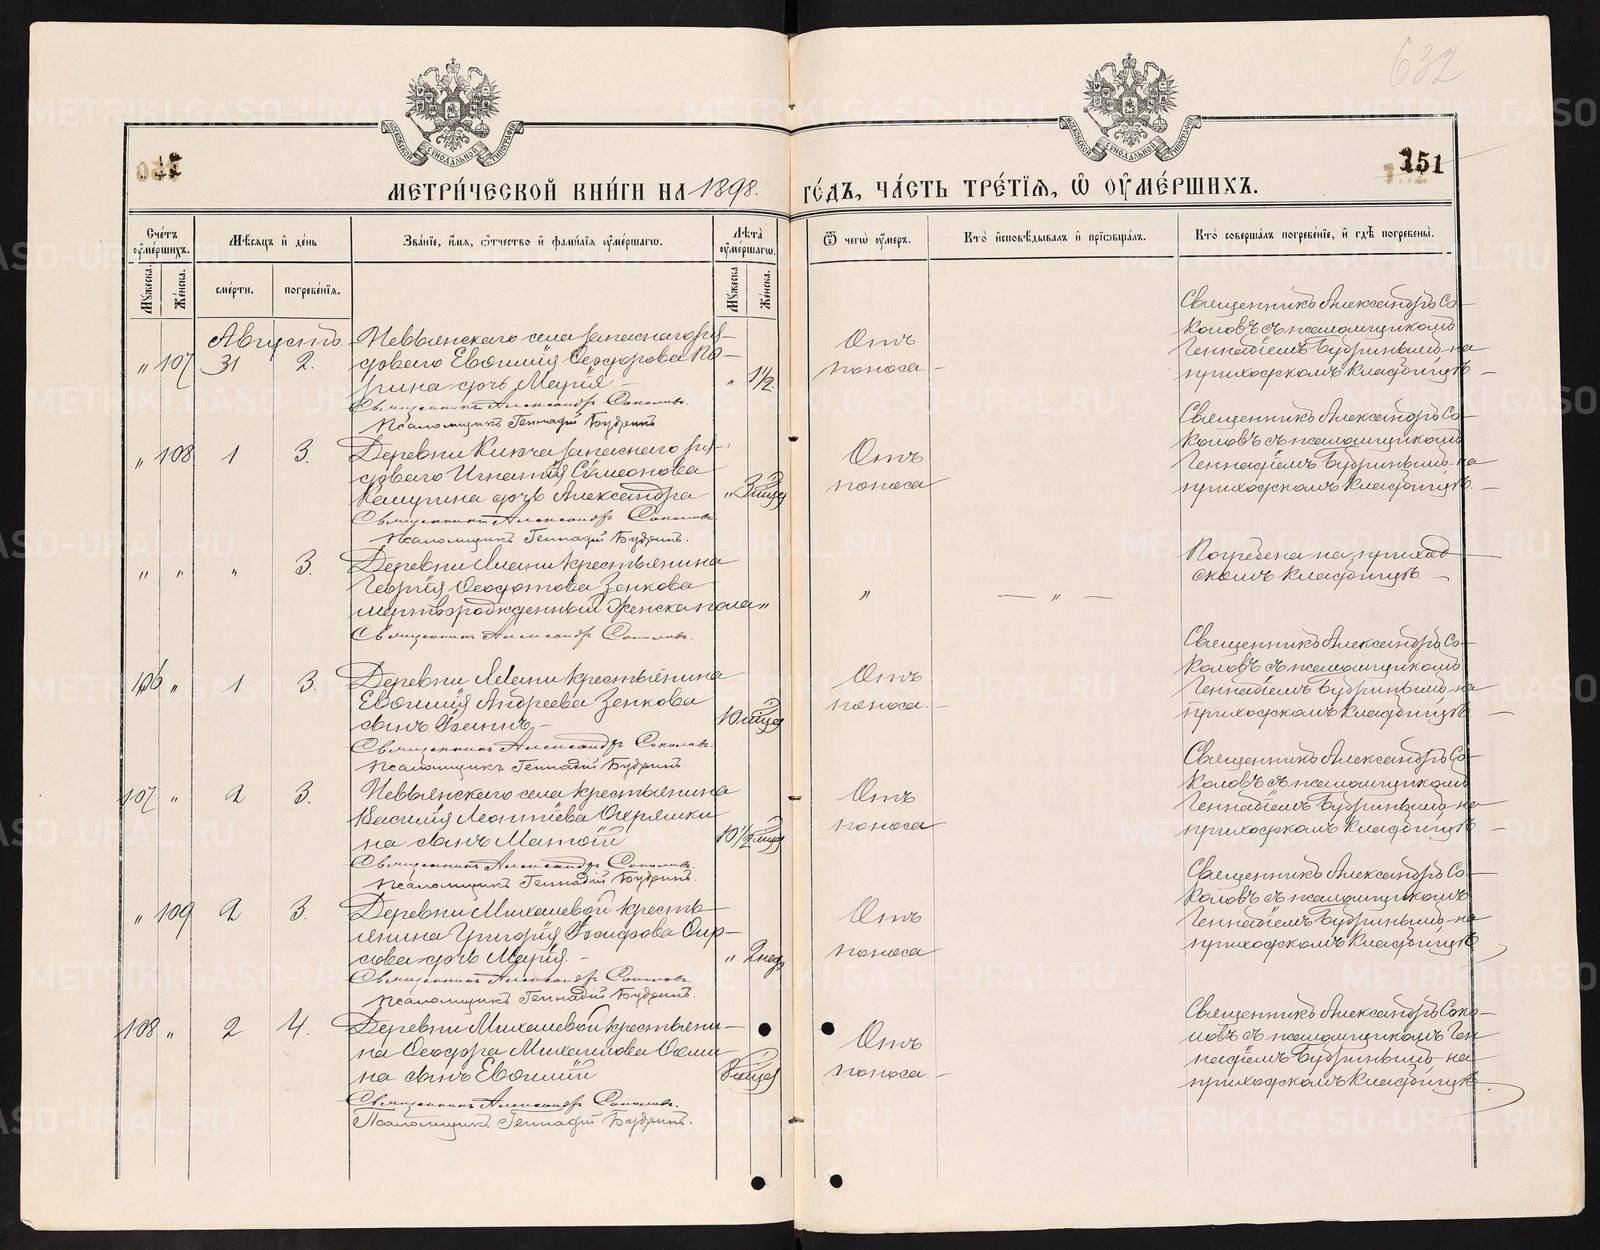 632
151
МЕТРИ́ЧЕСКОЙ КНИ́ГИ НА 1898. ГО́ДЪ, ЧА́СТЬ ТРЕ́ТІѦ, Ѽ ОУ҆МЕ́РШИХЪ.
Сче́тъ оу҆ме́ршихъ.
Мѣ́сяцъ и҆ де́нь
Зва́нїе, и҆́мя, ѻ҆́тчество и҆ фами́лїя оу҆ме́ршагѡ.
Лѣ́та оу҆ме́ршагѡ.
Ѿ чегѡ̀ оу҆́меръ.
Кто̀ и҆сповѣ́дывалъ и҆ прїѡбща́лъ.
Кто̀ соверша́лъ погребе́нїе, и҆ гдѣ̀ погребены̀.
Мꙋ́жеска.
Же́нска.
сме́рти.
погребе́нїя.
Мꙋ́жеска
Же́нска.
Августъ
„ 107 31 2.
Невьянскаго села запаснаго ря-
доваго Евѳимія Ѳеодорова По-
рина дочь Марія -
„ 1½.
Священникъ Александръ Соколовъ.
Псаломщикъ Геннадій Будринъ.
Отъ
поноса -
Священникъ Александръ Со-
коловъ съ псаломщикомъ
Геннадіемъ Будринымъ, на
приходскомъ кладбищѣ -
„ 108 1 3.
Деревни запаснаго ря-
доваго Игнатія Симеонова
дочь Александра
„ 3 мѣсяц
Священникъ Александръ Соколовъ.
Псаломщикъ Геннадій Будринъ.
Отъ
поноса
Священникъ Александръ Со-
коловъ съ псаломщикомъ
Геннадіемъ Будринымъ, на
приходскомъ кладбищѣ. -
„ „ „ 3.
Деревни крестьянина
Георгія Ѳеодотова Зенкова
мертворожденный женска пола „
Священникъ Александръ Соколовъ.
„
— „ —
Погребена на приход-
скомъ кладбищѣ -
106 „ 1 3.
Деревни крестьянина
Евѳимія Андреева Зенкова
сынъ -
10 мѣсяц
Священникъ Александръ Соколовъ.
Псаломщикъ Геннадій Будринъ.
Отъ
поноса. -
Священникъ Александръ Со-
коловъ съ псаломщикомъ
Геннадіемъ Будринымъ, на
приходскомъ кладбищѣ. -
107 „ 2 3.
Невьянскаго села крестьянина
Василія Леонтіева
на сынъ Матѳій
10½ мѣсяц
Священникъ Александръ Соколовъ.
Псаломщикъ Геннадій Будринъ.
Отъ
поноса
Священникъ Александръ Со-
коловъ съ псаломщикомъ
Геннадіемъ Будринымъ, на
приходскомъ кладбищѣ -
„ 109 2 3.
Деревни Михалевой кресть-
янина Григорія
дочь Марія. -
„ 2 нед
Священникъ Александръ Соколовъ.
Псаломщикъ Геннадій Будринъ.
Отъ
поноса
Священникъ Александръ Со-
коловъ съ псаломщикомъ
Геннадіемъ Будринымъ, на
приходскомъ кладбищѣ
108 „ 2 4.
Деревни Михалевой крестьяни-
на Ѳеодора Михаилова
на сынъ Евѳимій
8 мѣсяц
Священникъ Александръ Соколовъ.
Псаломщикъ Геннадій Будринъ.
Отъ
поноса -
Священникъ Александръ Соко-
ловъ съ псаломщикомъ Ген-
надіемъ Будринымъ, на
приходскомъ кладбищѣ.
METRIKI.GASO-URAL.RU